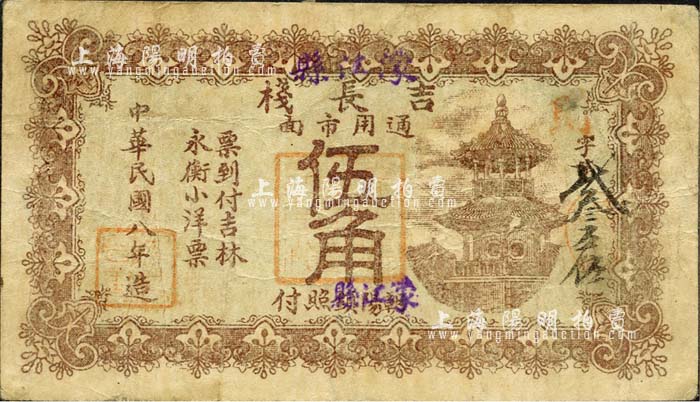 上海陽明拍賣
www.yangmingauction.com
濛江縣
吉長棧
通用市面
伍角
濛江縣
照付
字
票到付吉林
永衡小洋票
中華民國八年造
上海陽明拍賣
www.yangmingauction.com
上海陽明拍賣
www.yangmingauction.com